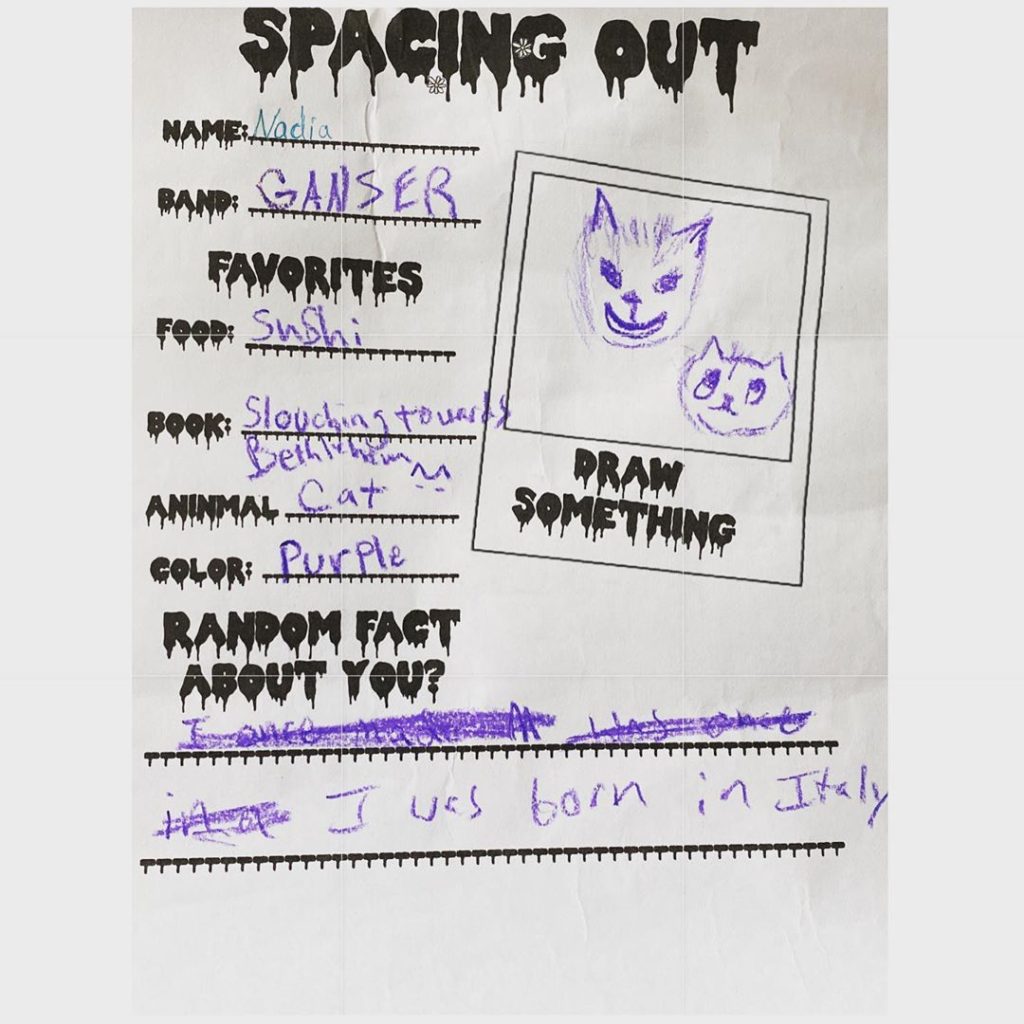 SPACING OUT
NAME: Nadia
BAND: GANSER
FAVORITES
FOOD: Sushi
BOOK: Slouching towards
Bethlehem
ANINMAL Cat
COLOR: Purple
DRAW
SOMETHING
RANDOM FACT
ABOUT YOU?
I once was once
in a I was born in Italy